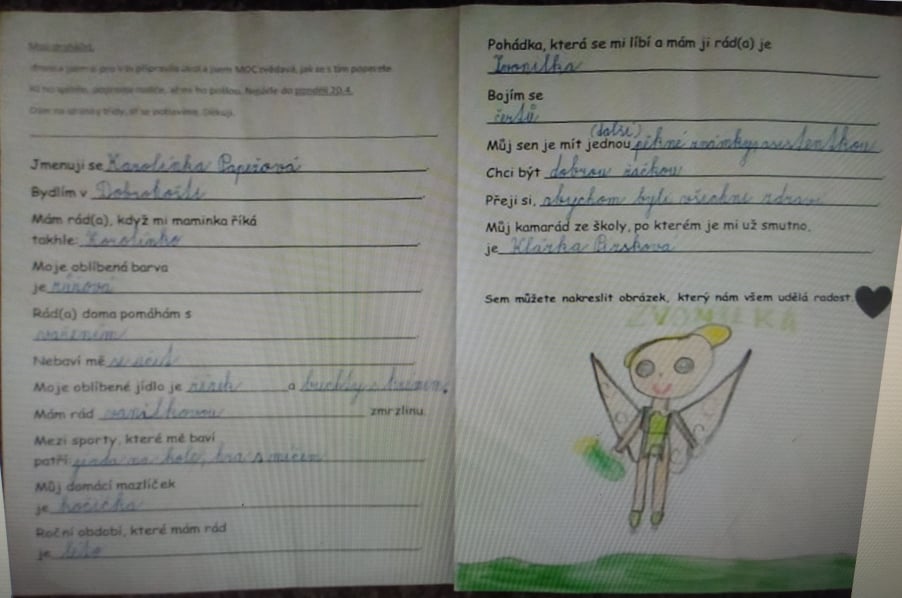 Moji drahoušci,
dneska jsem si pro Vás připravila úkol a jsem MOC zvědavá, jak se s tím poperete.
Až ho splníte, poproste rodiče, ať mi ho pošlou. Nejpozději do pondělí 20.4.
Dám na stránky třídy, ať se pobavíme. Děkuji.
Jmenuji se Karolínka Papežová.
Bydlím v Dobrohošti.
Mám rád(a), když mi maminka říká
takhle: Karolínko.
Moje oblíbená barva
je růžová.
Rád(a) doma pomáhám s
vařením.
Nebaví mě se učit.
Moje oblíbené jídlo je řízek a buchty s krémem.
Mám rád vanilkovou zmrzlinu.
Mezi sporty, které mě baví
patří: jízda na kole, hra s míčem
Můj domácí mazlíček
je kočička
Roční období, které mám rád
je léto
Pohádka, která se mi líbí a mám ji rád(a) je
Zvonilka
Bojím se
čertů
(další)
Můj sen je mít jednou pěkné známky
Chci být dobrou žačkou
Přeji si, abychom byli všichni zdraví
Můj kamarád ze školy, po kterém je mi už smutno,
je Klárka
Sem můžete nakreslit obrázek, který nám všem udělá radost.
ZVONILKA